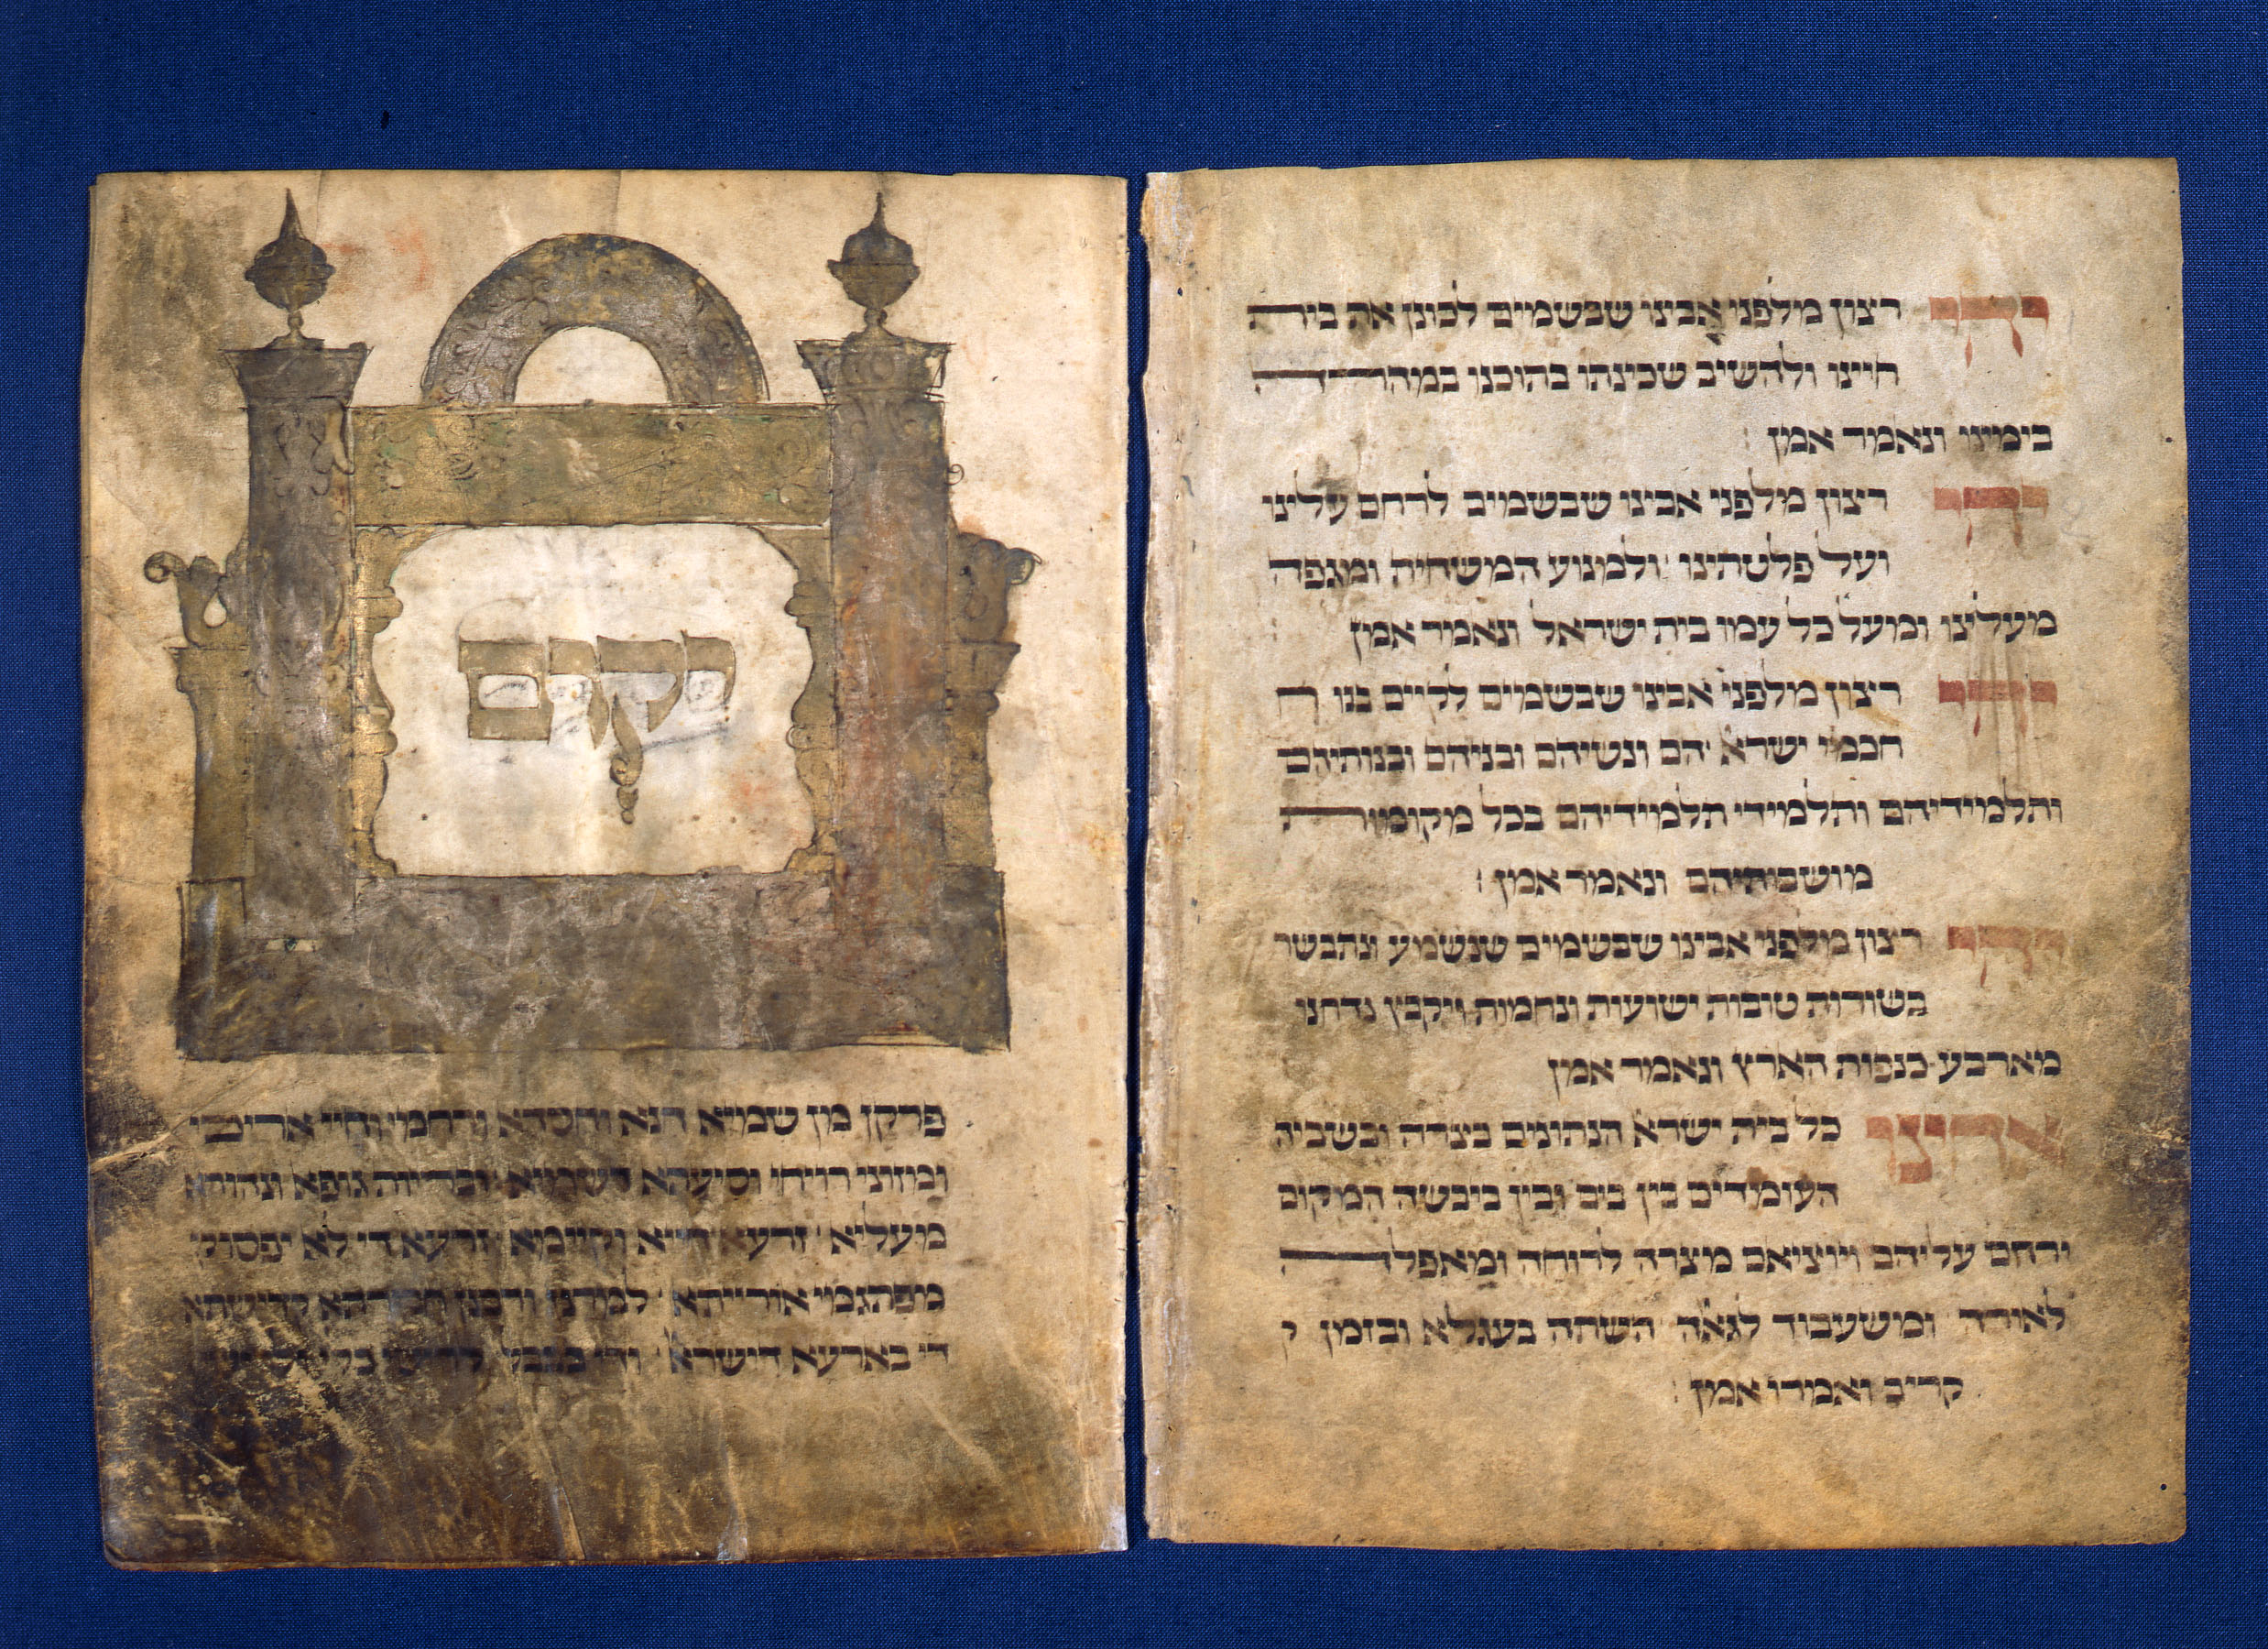 יהי רצון מלפני אבינו שבשמים לכונן את בית
חיינו ולהשיב שכינתו בתוכנו במהרה
בימינו ונאמר אמן
יהי רצון מלפני אבינו שבשמים לרחם עלינו
ועל פלטתינו ולמנוע המשחית ומגפה
מעלינו ומעל כל עמו בית ישראל ונאמר אמן
יהי רצון מלפני אבינו שבשמים לקיים בנו ח
חכמי ישרא הם ונשיהם ובניהם ובנותיהם
ותלמידיהם ותלמידי תלמידיהם בכל מקומות
מושבותיהם ונאמר אמן
רצון מלפני אבינו שבשמים שנשמע ונתבשר
בשורות טובות ישועות ונחמות ויקבץ נדחנו
מארבע כנפות הארץ ונאמר אמן
אחינו כל בית ישרא הנתונים בצרה ובשביה
העומדים בין בים ובין ביבשה המקום
ירחם עליהם ויוציאם מצרה לרוחה ומאפלה
לאורה ומשעבוד לגאה השתה בעגלא ובזמן ק
קריב ואמרו אמן
יקום
פרקן מן שמיא חנא וחסדא ורחמי וחיי אריכי
ומזוני רויחי וסיעתא דשמיא ובריות גופא ונהורא
מעליא זרעא חייא וקיימא זרעא די לא יפסוק
מפתגמי אורייתא למרנן ורבנן חבורתא קדישתא
די בארעא דישרא ודי בבבל